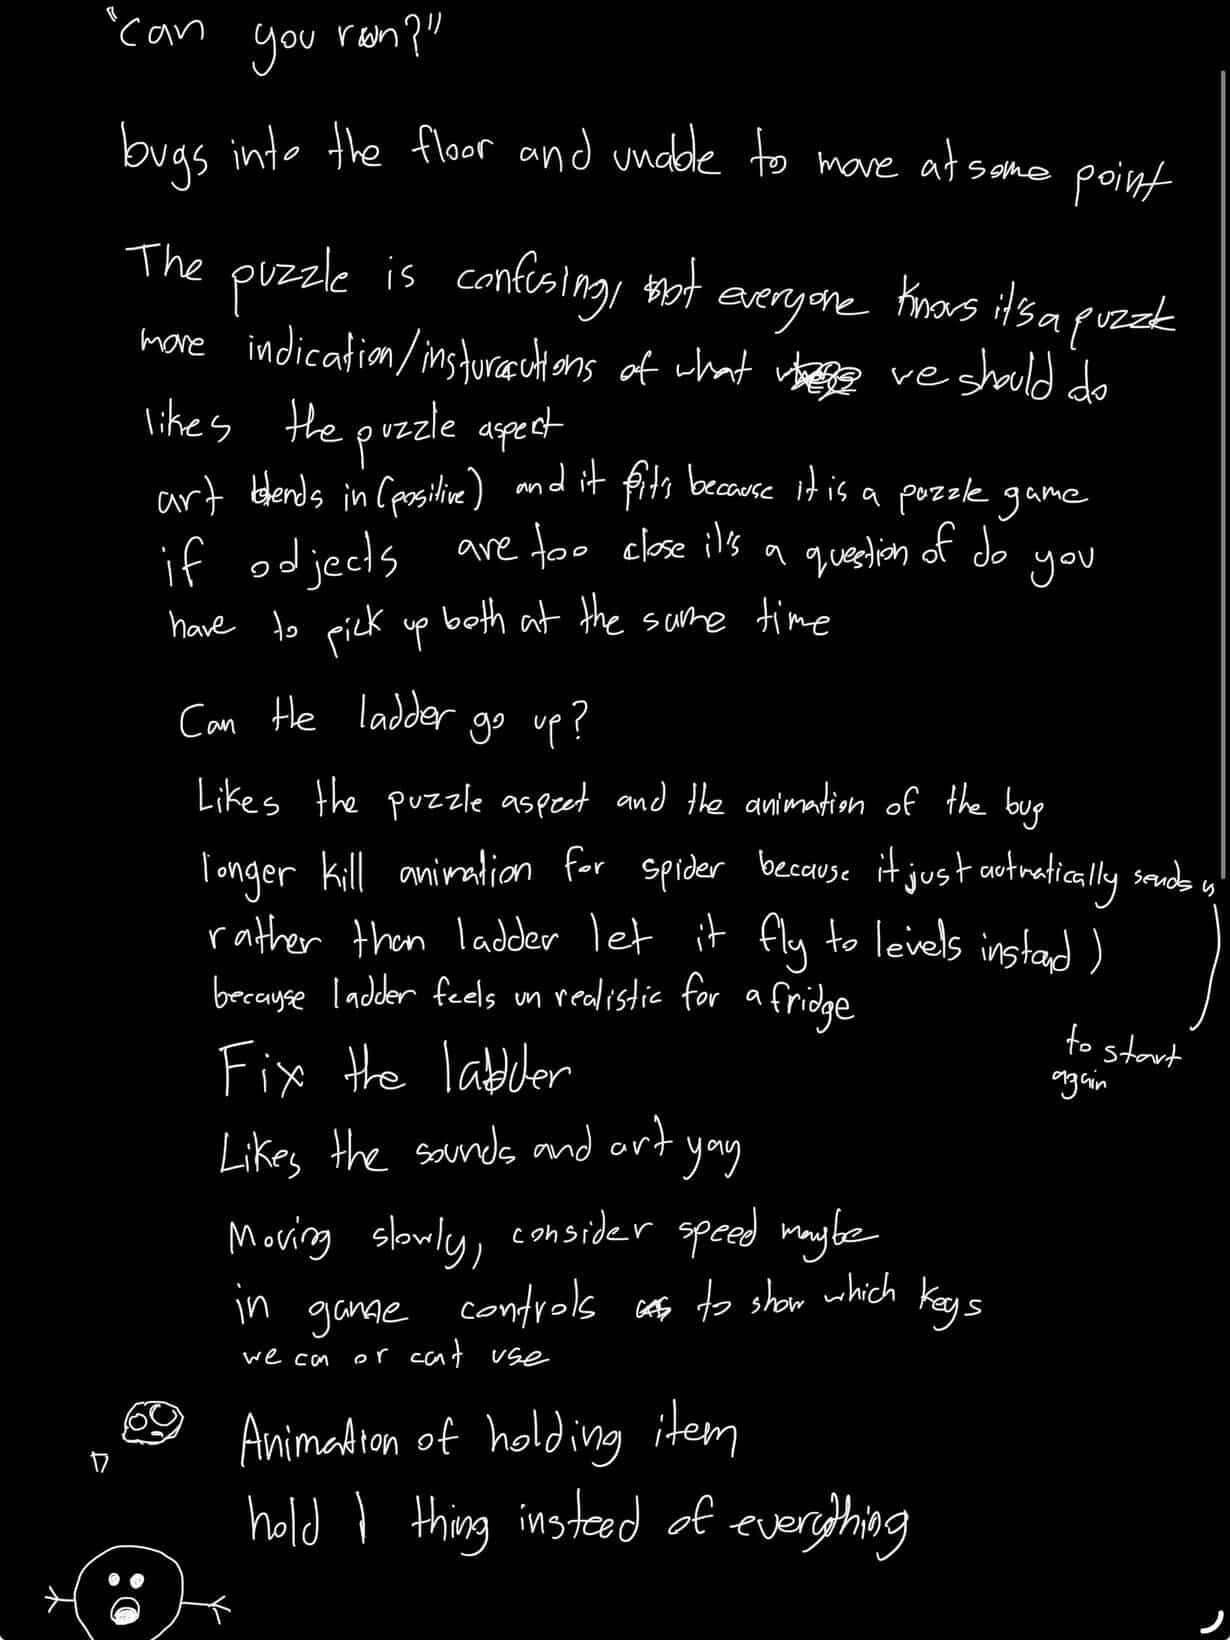 "can you run?"
bugs into the floor and unable to move at some point
The puzzle is confusing, not everyone knows it's a puzzle
more indication/insturcutions of what we should do
likes the puzzle aspect
art blends in (positive) and it fits because it is a puzzle game
if odjects are too close it's a question of do you
have to pick up both at the same time
Can the ladder go up?
Likes the puzzle aspect and the animation of the bug
longer kill animation for spider because it just automatically sends us
rather than ladder let it fly to levels instead)
because ladder feels unrealistic for a fridge
to start
again
Fix the ladder
Likes the sounds and art yay
Moving slowly, consider speed maybe
in game controls to show which keys
we can or cant use
Animation of holding item
hold 1 thing insteed of everything